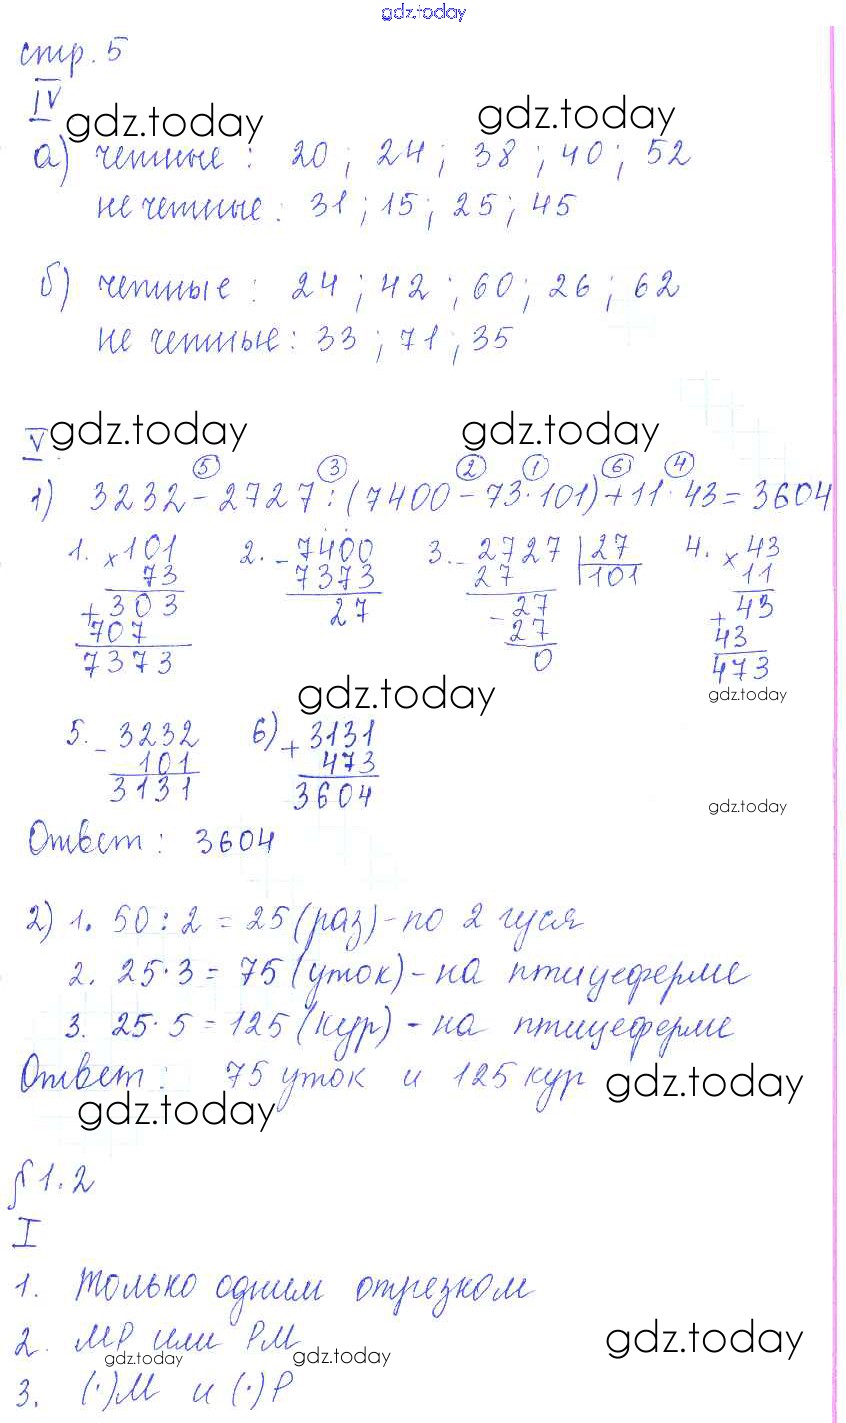 gdz.today
стр. 5
IV
gdz.today gdz.today
а) четные : 20 ; 24 ; 38 ; 40 ; 52
не четные : 31 ; 15 ; 25 ; 45
б) четные : 24 ; 42 ; 60 ; 26 ; 62
не четные : 33 ; 71 ; 35
V gdz.today gdz.today
5 3 2 1 6 4
1) 3232 - 2727 : (7400 - 73 · 101) + 11 · 43 = 3604
1. × 101 2. - 7400 3. - 2727 | 27 4. × 43
73 7373 27 101 11
+ 303 27 - 27 + 43
707 27 43
7373 0 473
gdz.today gdz.today
5. - 3232 6) + 3131
101 473
3131 3604
gdz.today
Ответ : 3604
2) 1. 50 : 2 = 25 (раз) - по 2 гуся
2. 25 · 3 = 75 (уток) - на птицеферме
3. 25 · 5 = 125 (кур) - на птицеферме
Ответ : 75 уток и 125 кур gdz.today
gdz.today
§ 1.2
I
1. Только одним отрезком
2. МР или РМ gdz.today
gdz.today gdz.today
3. (·)М и (·)Р